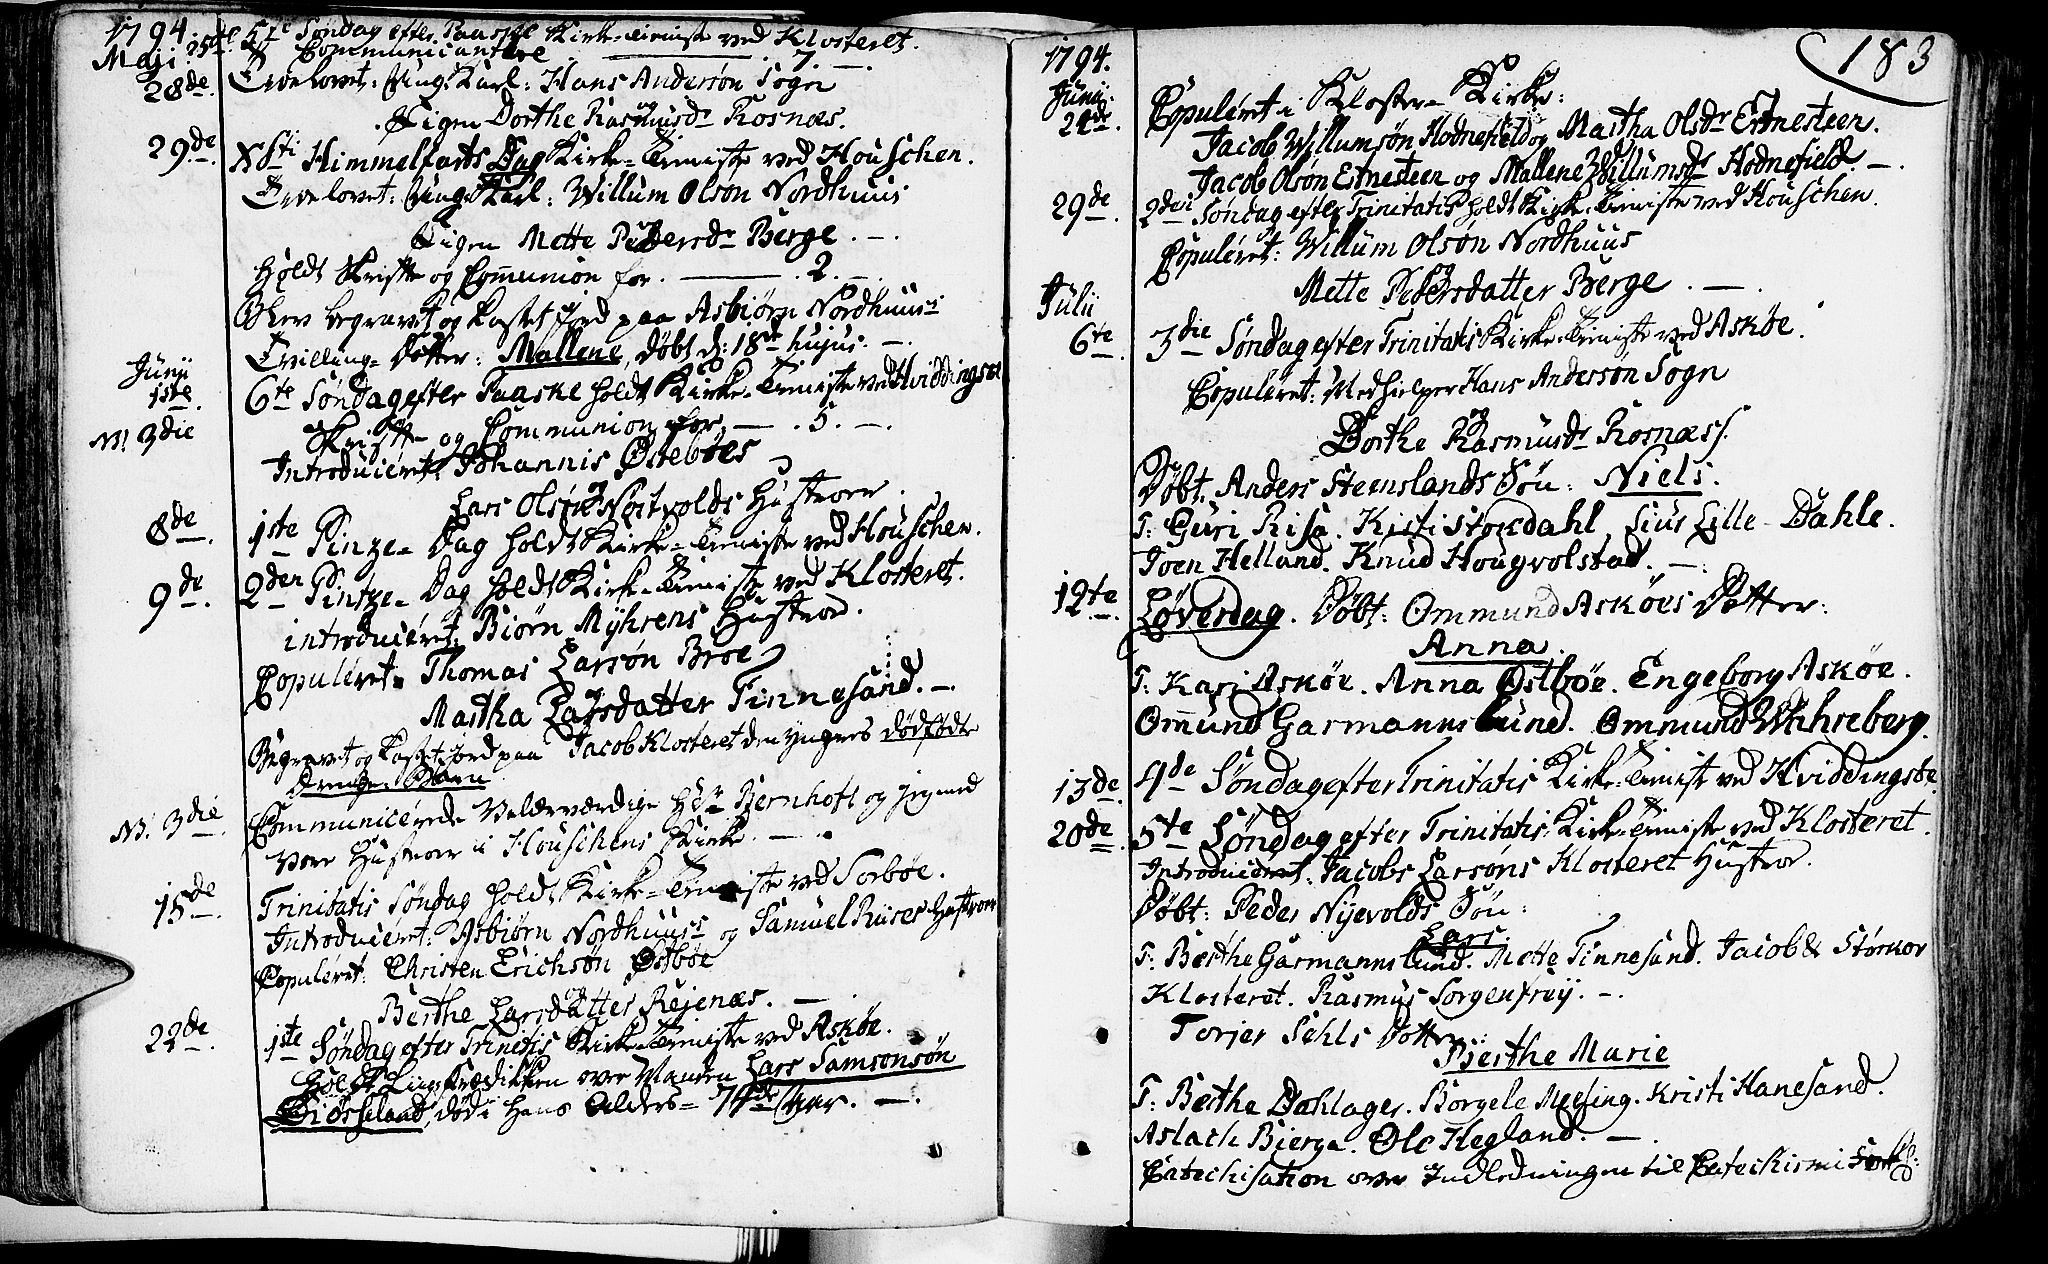 1794.
Maji 25de 5te Søndag efter Paaske Kirke-Tieniste ved Klosteret.
Communicantere 7. —
28de Trolovet: Ung Karl: Hans Andersøn Sogn
Pigen Dorthe Rasmusdr Rosnæs.
29de. Xsti Himmelfarts Dag Kirke-Tieniste ved Houschen.
Trolovet: Ung Karl: Willum Olsøn Nordhuus
og
Pigen Mette Pedersdr Berge. —.
Holdt Skrifte og Com̄union for. — .2. —.
Blev begravet og kastet Jord paa Asbiørn Nordhuus's
Tvilling-Dotter: Mallene, døbt d: 18de hujus. —.
Junii
1ste 6te Søndag efter Paaske holdt Kirke-Tieniste ved Hviddingsøe
Skrifte og Communion for — .5. —.
N! 3die
Introduceret: Johannis Østebøes
og
Lars Olsøn Nortvolds Hustroer.
8de. 1ste Pintze-Dag holdt Kirke-Tieniste ved Houschen.
9de. 2den Pintze-Dag holdt Kirke-Tieniste ved Klosteret.
introduceret: Biørn Myhrens Hustroe.
Copuleret: Thomas Larsøn Broe
og
Martha Larsdatter Finnesand. —.
Begravet og kastet Jord paa Jacob Klosteret den yngres dødfødte
Drenge-Barn
N! 3die. Communicerede Velærværdige Hdr Bernhoft og jeg med
vore Hustroer i Houschens Kirke. —.
15de. Trinitatis Søndag holdt Kirke-Tieniste ved Sorbøe.
Introduceret: Asbiørn Nordhuus's og Samuel Riises Hustroer
Copuleret: Christen Erichsøn Østbøe
og
Berthe Larsdatter Rejenæs. —.
22de. 1ste Søndag efter Trinitis Kirke-Tieniste ved Askøe.
Holdt Liigprædikken over Manden Lars Samsonsøn
Giøsseland, død i hans Alders 74de Aar. —.
1794. 183
Junii:
24de. Copuleret i Kloster-Kirke:
Jacob Willumsøn Hodnefield og Martha Olsdr Ertnesteen.
Jacob Olsøn Ertnesteen og Mallene Willumsdr Hodnefield. —.
29de. 2den Søndag efter Trinitatis holdt Kirke-Tieniste ved Houschen.
Copuleret: Willum Olsøn Nordhuus
og
Mette Pedersdatter Berge. —.
Julii
6te. 3die Søndag efter Trinitatis Kirke-Tieniste ved Askøe.
Copuleret: Medhielper Hans Andersøn Sogn
og
Dorthe Rasmusdr Rosnæs.
Døbt. Anders Steenslands Søn: Niels.
T: Guri Risa. Kisti Stordahl, Siur Lille-Dahle.
Joen Helland. Knud Hougvolstad. —.
12te. Løverdag. Døbt: Ommund Askøes Dotter:
Anna.
T: Kari Askøe. Anna Østbøe. Engeborg Askøe.
Om̄und Garmannslund. Ommund Wahreberg.
13de. 4de Søndag efter Trinitatis Kirke-Tieniste ved Hviddingsøe.
20de. 5te Søndag efter Trinitatis Kirke-Tieniste ved Klosteret.
Introduceret: Jacobs Larsøns Klosteret Hustroe.
Døbt: Peder Nyevolds Søn:
Lars.
T: Berthe Garmannslund. Mette Finnesand. Jacob & Størkor
Klosteret. Rasmus Sorgenfrey. —.
Torjer Sehls Dotter:
Berthe Marie
T: Berthe Dahlager. Borgele Meling. Kristi Hanesand.
Aslach Bierge. Ole Hegland. —.
Catechisation over Indledningen til Catechismi